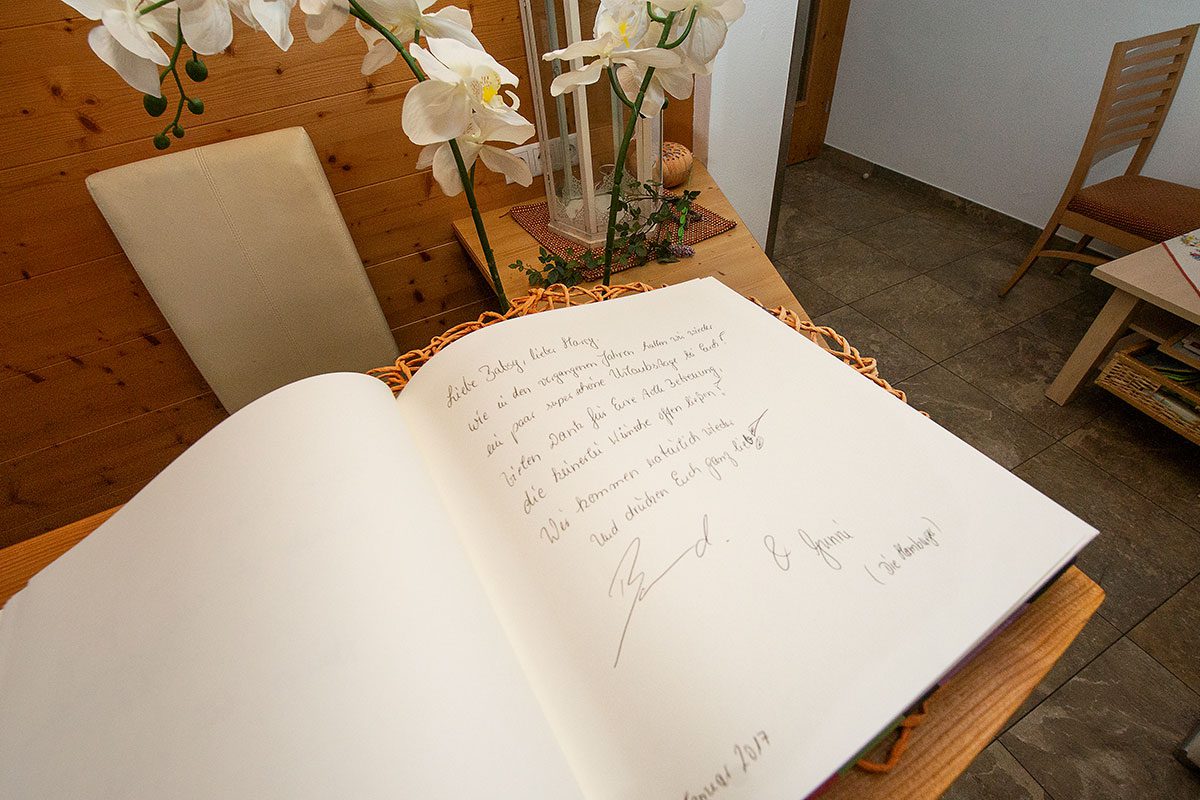 Liebe Babsy, lieber Harry
wie in den vergangenen Jahren hatten wir wieder
ein paar super schöne Urlaubstage bei Euch!
Vielen Dank für Eure tolle Betreuung,
die keinerlei Wünsche offen ließen!
Wir kommen natürlich wieder
Und drücken Euch ganz lieb
& Gunni
(Die Hamburger)
nuar 2017